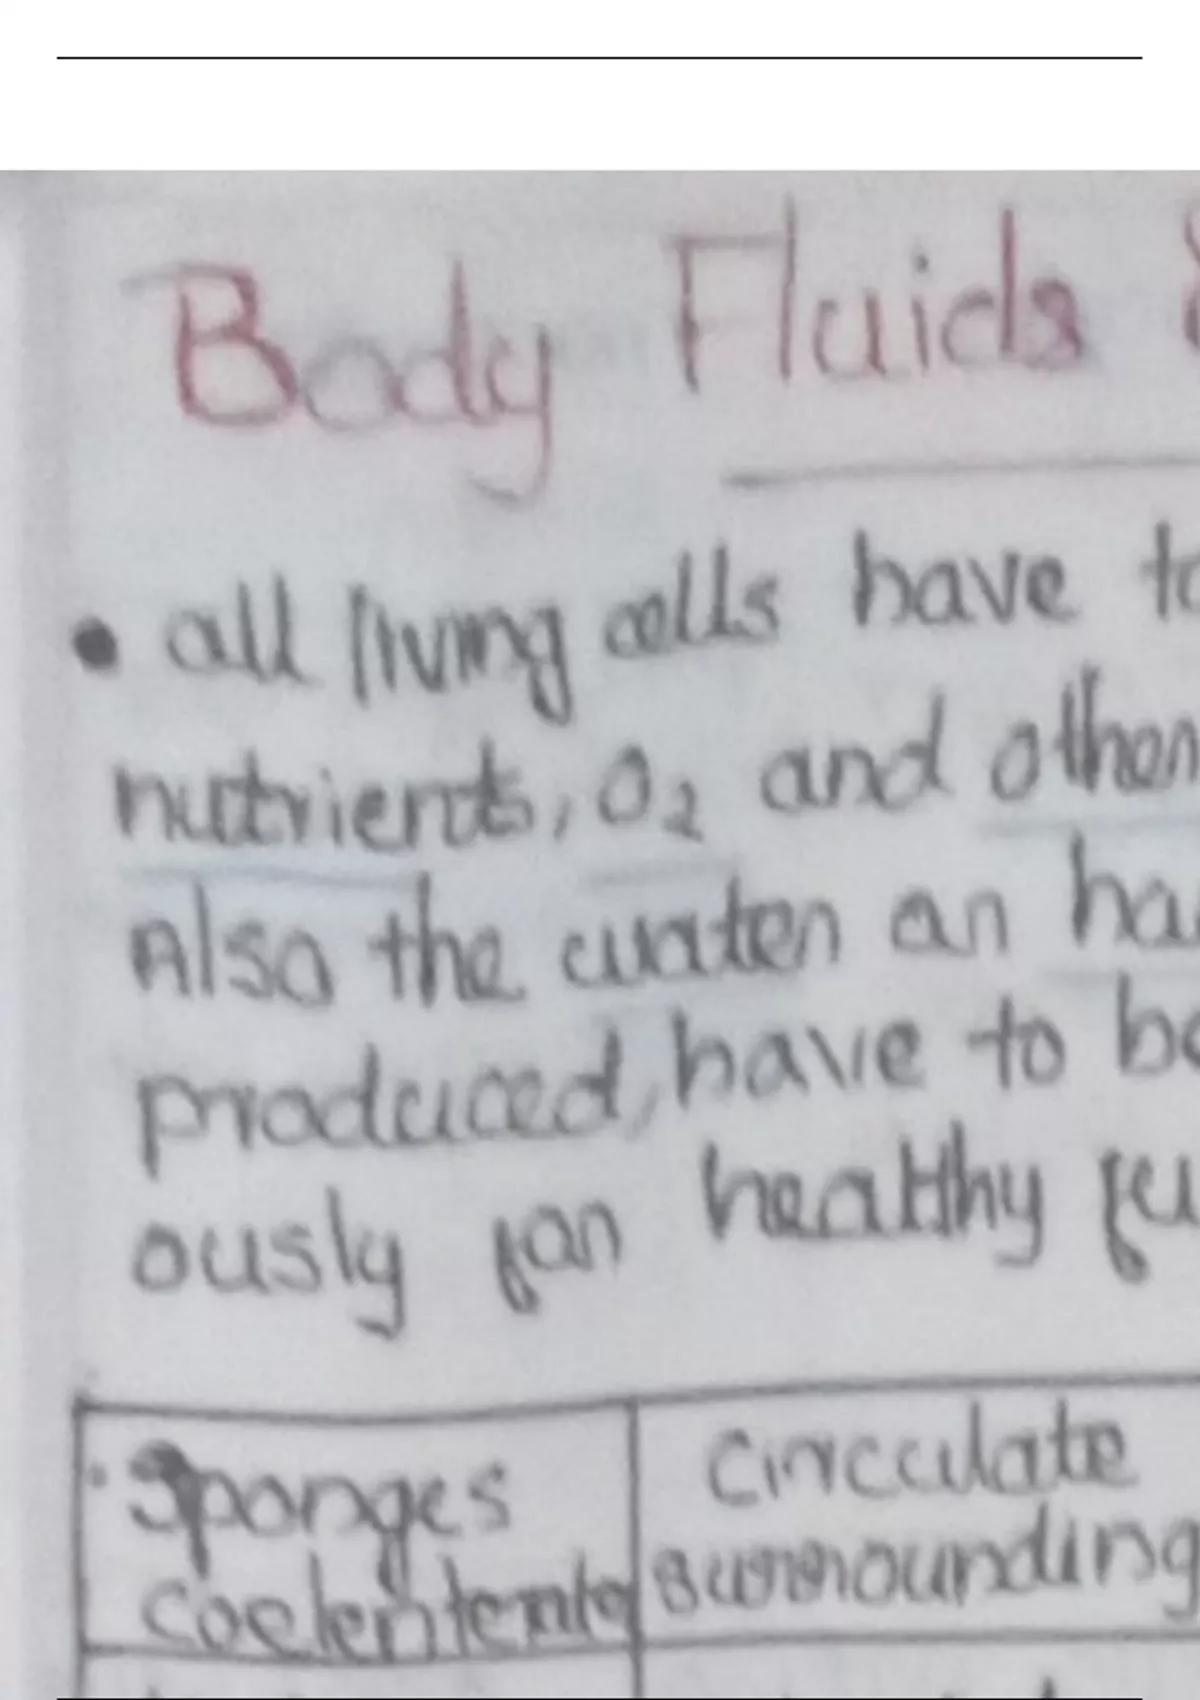 Body Fluids
all living cells have to
nutrients, O2 and other
Also the water an ha
produced, have to be
ously for healthy fu
Sponges
Coelenterate
Circulate
surrounding